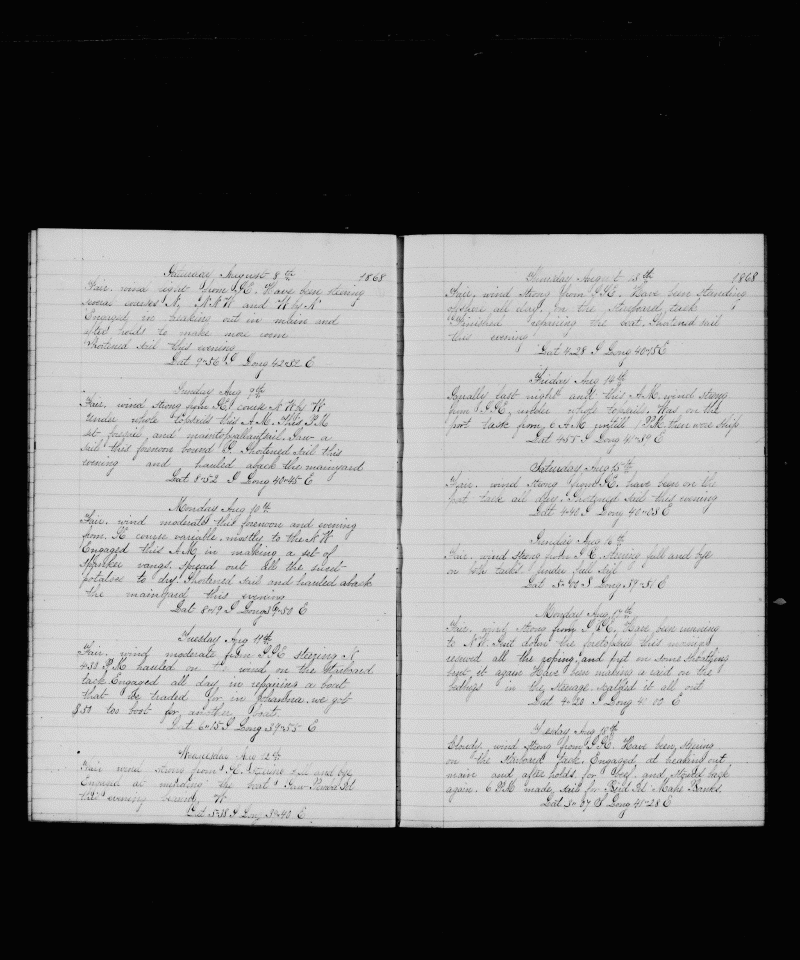 Saturday August 8th 1868
Fair. wind light from SE. Have been steering
several courses N, NNW and N by N
Engaged in breaking out in main and
after holds to make more room
Shortened sail this evening
Lat 9-56 S Long 42-52 E
Sunday Aug 9th
Fair. wind strong from SE, course N W by W
under whole topsails this A.M. This P.M
set foresail, and maintopgallantsail. Saw a
sail this forenoon bound S. Shortened sail this
evening and hauled aback the mainyard
Lat 8-52 S Long 40-45 E
Monday Aug 10th
Fair. wind moderate this forenoon and evening
from SE course variable mostly to the NW
Engaged this A.M. in making a set of
Spanker vangs. Spread out all the sweet
potatoes to dry. Shortened sail and hauled aback
the mainyard this evening
Lat 8-19 S Long 39-50 E
Tuesday Aug 11th
Fair. wind moderate from SSE steering N
4-30 P.M hauled on the wind on the starboard
tack Engaged all day in repairing a boat
that we traded for in Johanna. we got
$50 to boot for another boat.
Lat 6-15 S Long 39-55 E
Wednesday Aug 12th
Fair wind strong from SE. full and bye
Engaged at mending the boat. Saw
this evening bearing W.
Lat 5-18 S Long 39-40 E
Thursday August 13th 1868
Fair, wind strong from SSE. Have been standing
all day. on the starboard tack
Finished repairing the boat. Shortened sail
this evening
Lat 4-28 S Long 40-15 E
Friday Aug 14th
Squally last night and this A.M. wind strong
from SSE, under whole topsails. Was on the
port tack from 6 A.M until 1 P.M, then wore ship
Lat 4-55 S Long 41-39 E
Saturday Aug 15th
Fair. wind strong from SE. have been on the
port tack all day. Shortened sail this evening
Lat 4-40 S Long 40-05 E
Sunday Aug 16th
Fair. wind strong from SE. steering full and bye
on both tacks under full sail
Lat S Long 39-51 E
Monday Aug 17th
Fair. wind strong from SSE, Have been
to N.W. Sent down the foretopsail this morning
resewed all the roping, and put in some
bent it again Have been making a raid on the
bedbugs in the steerage. scalded it all out
Lat 4-20 S Long E
Tuesday Aug 18th
Cloudy, wind strong from SSE. Have been steering
on the Starboard tack. Engaged at breaking out
main and after holds for beef. and stowed back
again. 6 P.M made sail for Bird Isl Mahe Banks.
Lat S Long 45-28 E